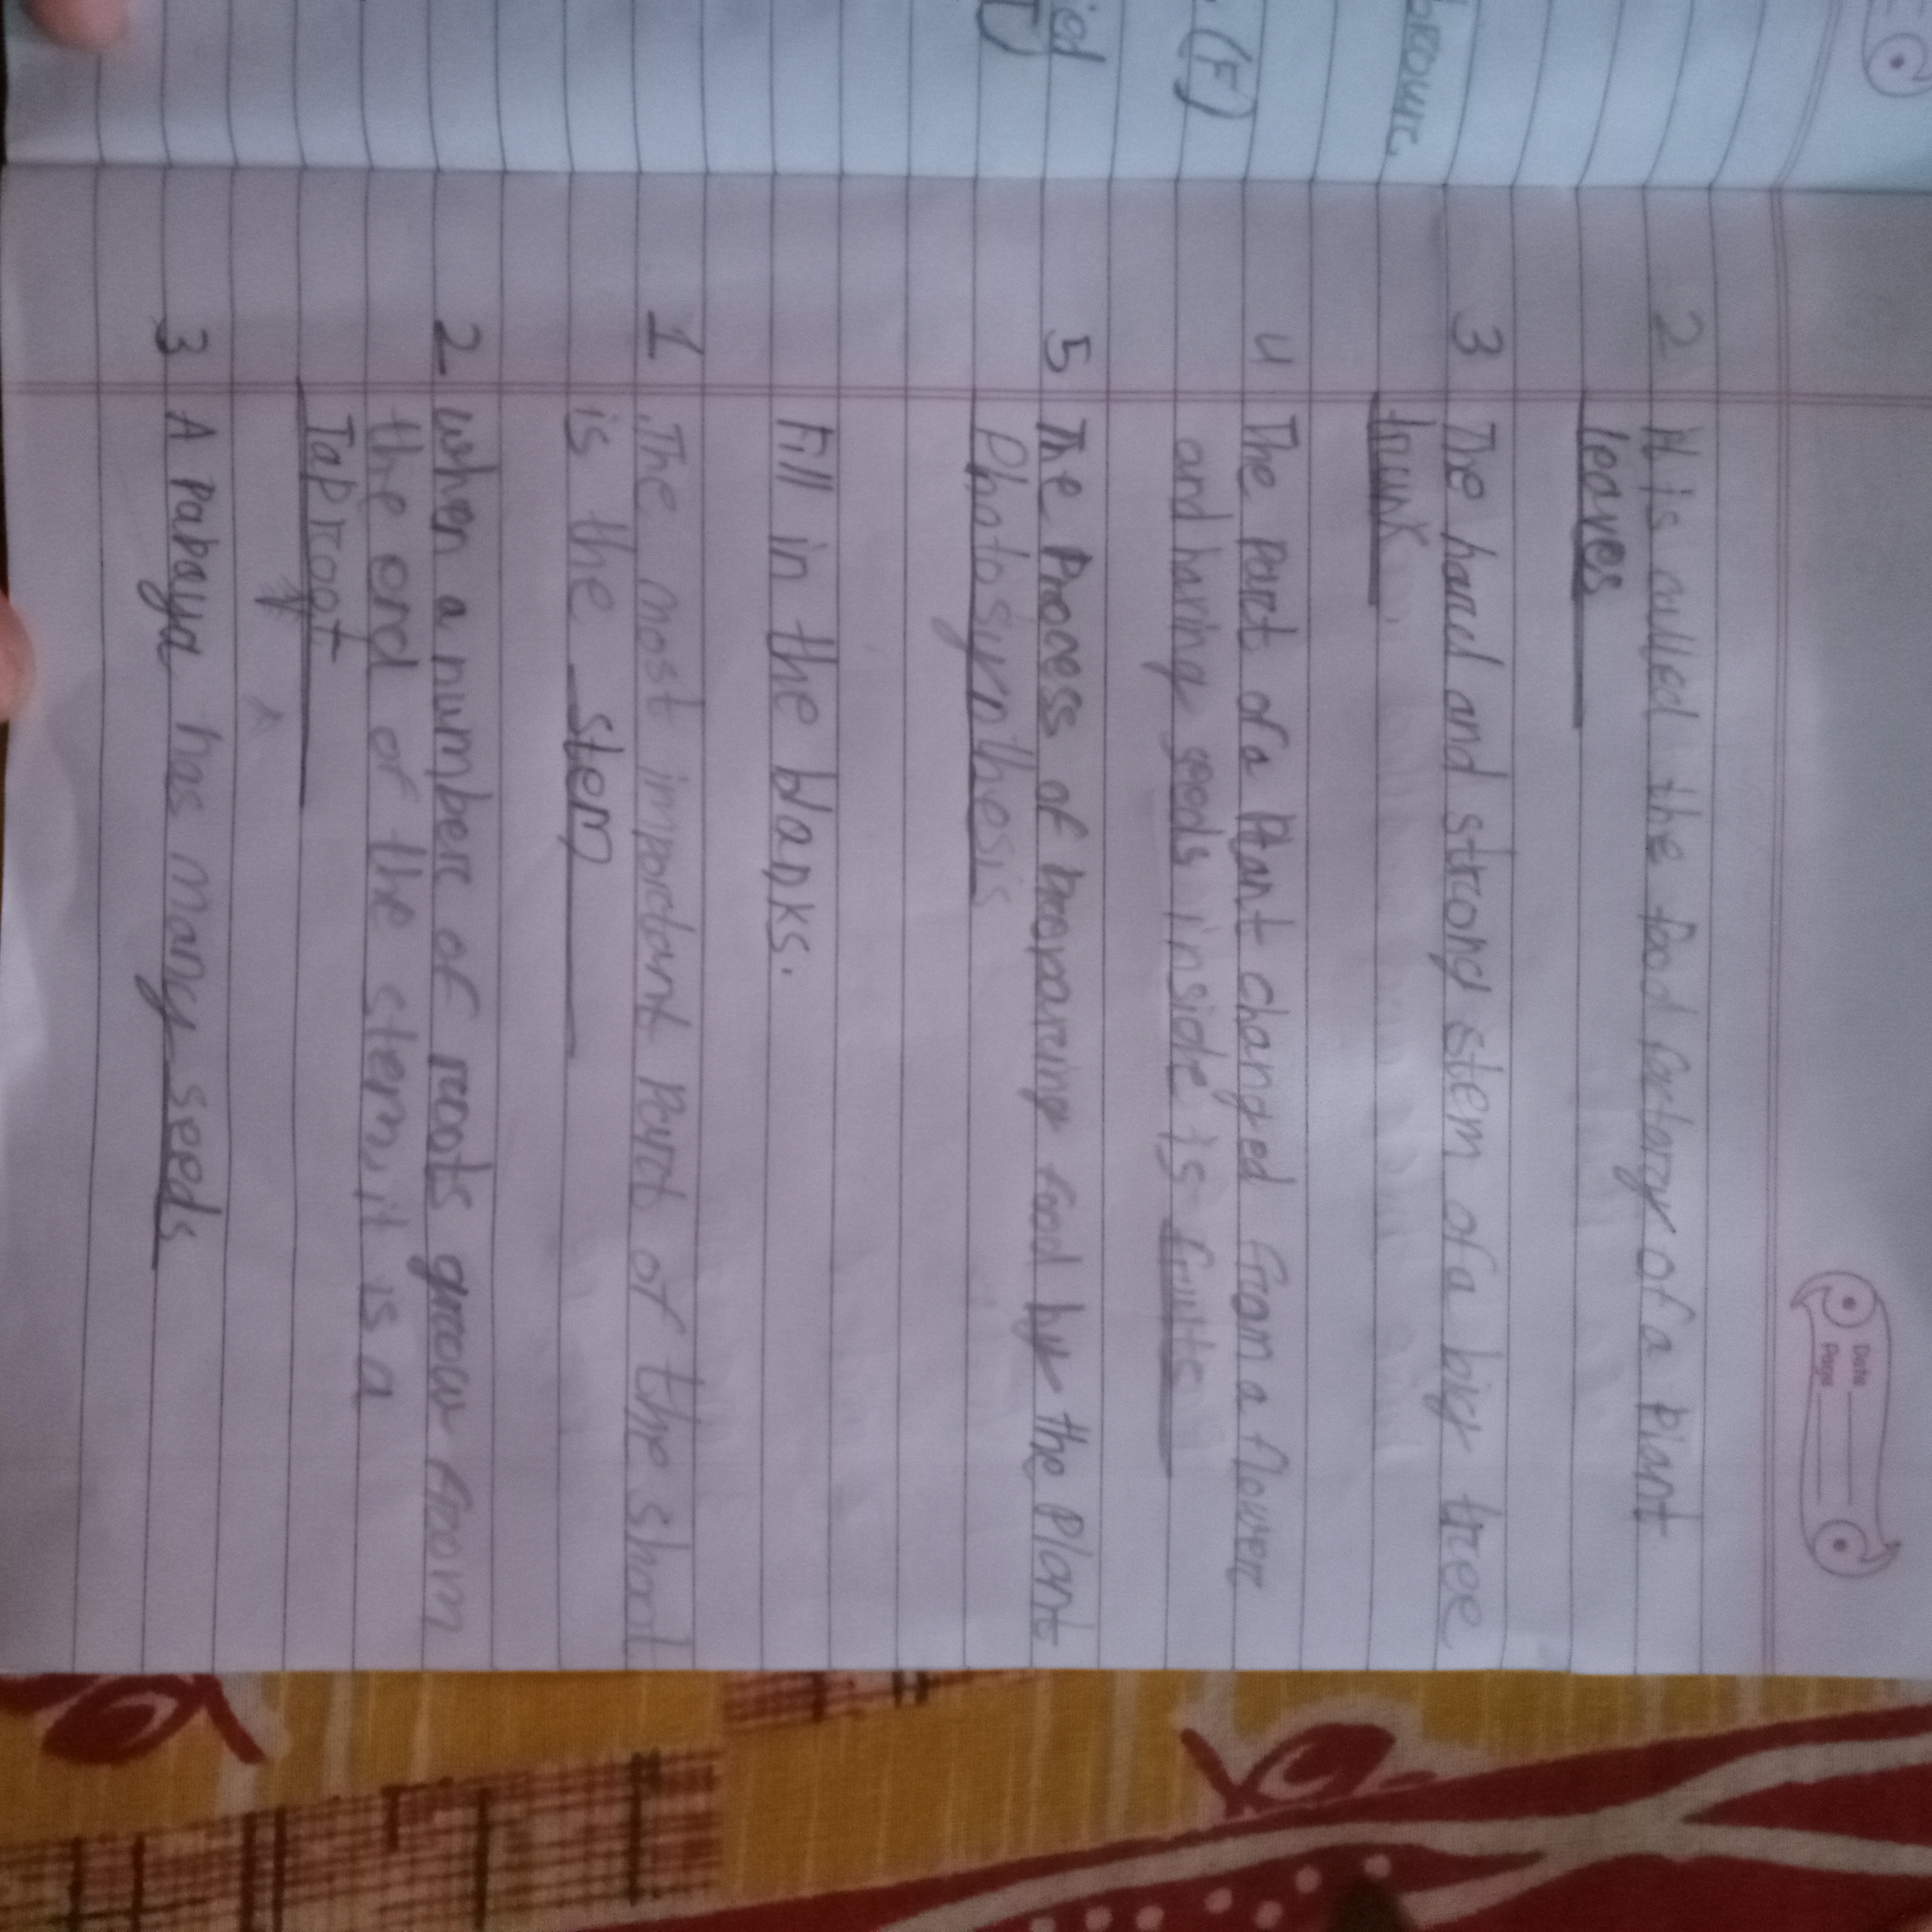 brown.
(F)
ied
(T)
Date
Page
2 It is called the food factory of a Plant
leaves
3 The hard and strong stem of a big tree
trunk
4 The part of a Plant changed from a flower
and having seeds inside is fruits
5 The Process of preparing food by the Plant
Photosynthesis
Fill in the blanks.
1 The most important part of the shoot
is the stem
2 when a number of roots grow from
the end of the stem, it is a
Taproot
3 A papaya has many seeds